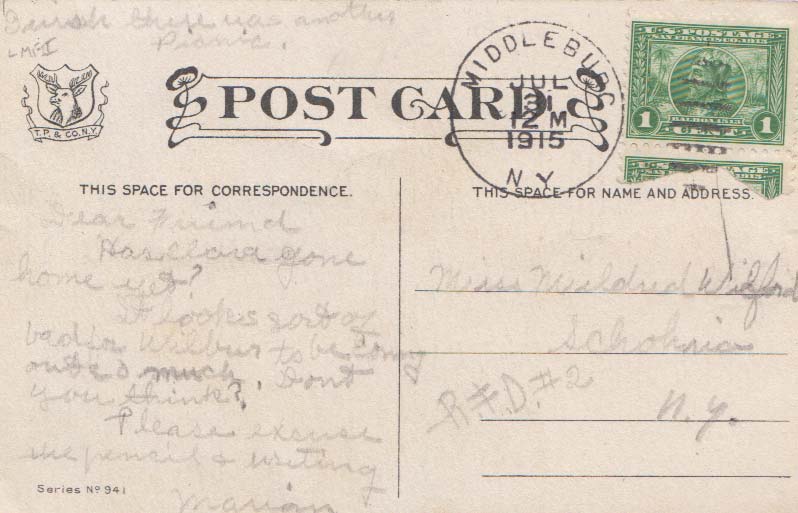 I wish there was another
Picnic.
T.P. & CO. N.Y.
POST CARD
MIDDLEBURG
JUL
31
12 M
1915
N Y
U.S. POSTAGE
SAN FRANCISCO 1915
1 BALBOA 1513 1
CENT
THIS SPACE FOR CORRESPONDENCE.
THIS SPACE FOR NAME AND ADDRESS.
Dear Friend
Has Clara gone
home yet?
It looks sort of
bad for Wilbur to be
out so much. Dont
you think?
Please excuse
the pencil & writing
Marian
Miss Mildred Wilford
Schoharie
R.F.D. #2
N.Y.
Series No 941